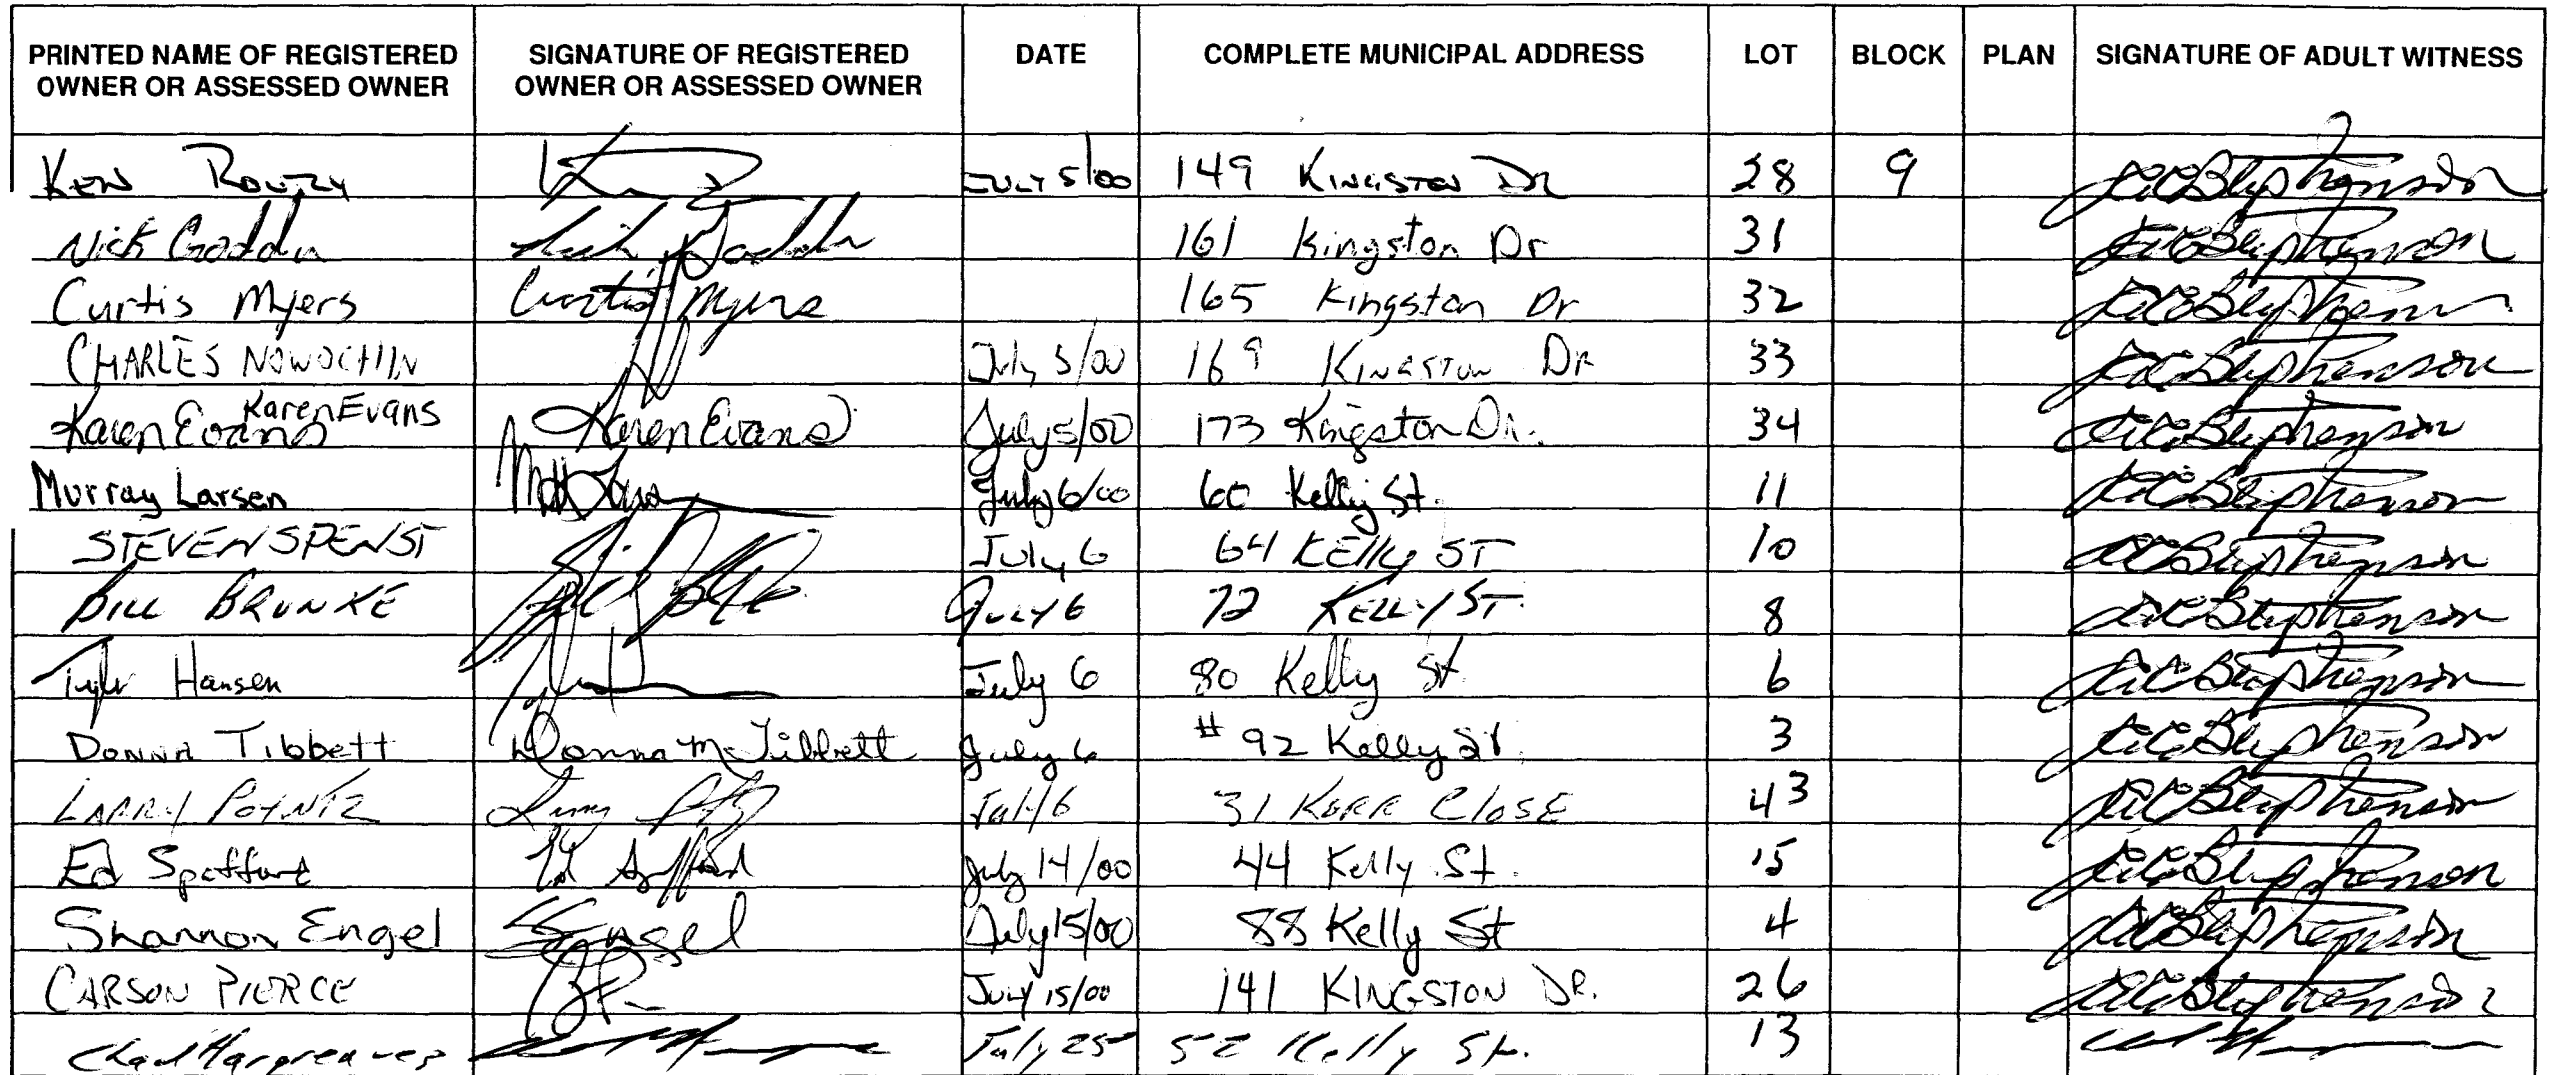 PRINTED NAME OF REGISTERED OWNER OR ASSESSED OWNER SIGNATURE OF REGISTERED OWNER OR ASSESSED OWNER DATE COMPLETE MUNICIPAL ADDRESS LOT BLOCK PLAN SIGNATURE OF ADULT WITNESS
Ken JULY 5/00 149 KINGSTON DR 28 9 Stephenson
Nick Gaddu 161 Kingston Dr 31 Stephenson
Curtis Myers Curtis Myers 165 Kingston Dr 32
CHARLES NOWOCHIN July 5/00 169 KINGSTON DR 33 Stephenson
Karen Evans Karen Evans Karen Evans July 5/00 173 Kingston Dr. 34 Stephenson
Murray Larsen July 6/00 60 Kelly St. 11 Stephenson
STEVEN SPENST July 6 64 KElly ST 10 Stephenson
BILL BRUNKE JULY 6 72 KELLY ST. 8 Stephenson
Tyler Hansen July 6 80 Kelly St 6 Stephenson
DONNA Tibbett Donna M Tibbett July 6 # 92 Kelly St. 3 Stephenson
LARRY POYNTZ July 6 31 KERR ClOSE 43 Stephenson
Ed Spafford Ed Spafford July 14/00 44 Kelly St. 15 Stephenson
Shannon Engel S Engel July 15/00 88 Kelly St 4 Stephenson
CARSON PIERCE JULY 15/00 141 KINGSTON DR. 26 Stephenson
Chad Hargreaves July 25 52 Kelly St. 13